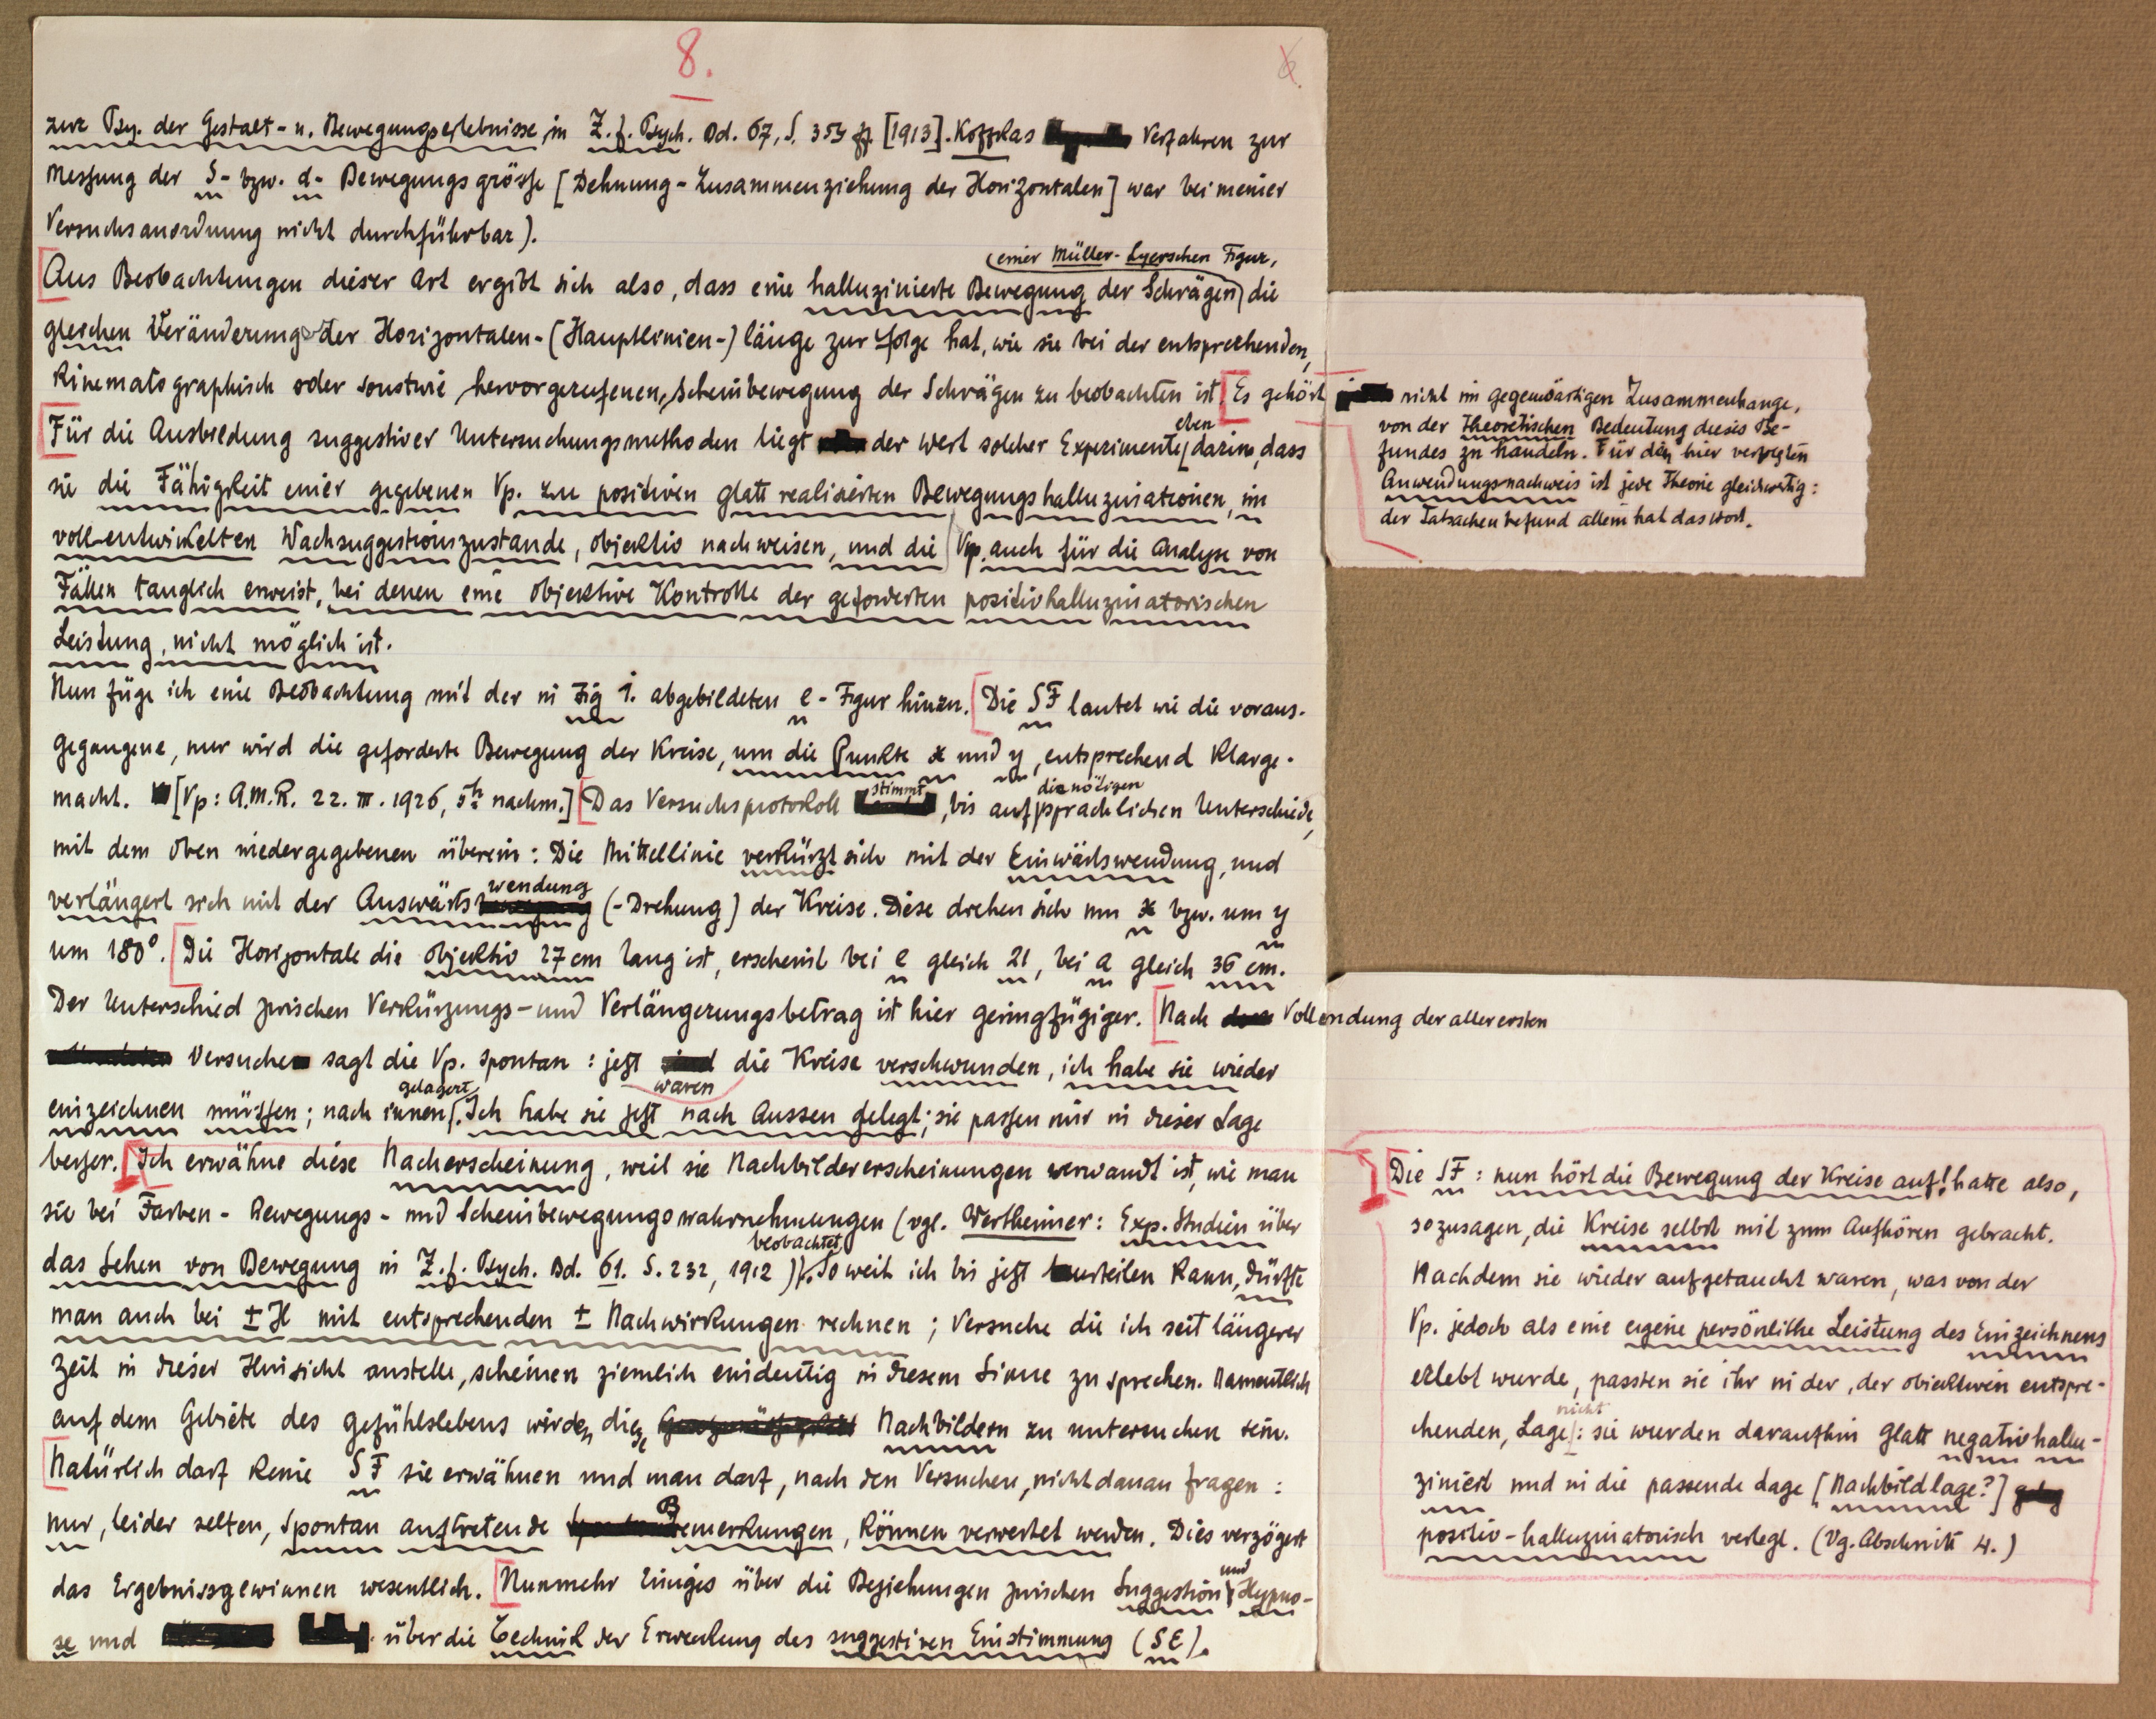 8.
6
zur Psy. der Gestalt- u. Bewegungserlebnisse, in Z. f. Psych. Bd. 67, S. 353 ff. [1913]. Koffkas Verfahren zur
Messung der S- bzw. d- Bewegungsgrösse [Dehnung - Zusammenziehung der Horizontalen] war bei meiner
Versuchsanordnung nicht durchführbar).
einer Müller-Lyerschen Figur,
Aus Beobachtungen dieser Art ergibt sich also, dass eine halluzinierte Bewegung der Schrägen die
gleichen Veränderung der Horizontalen-(Hauptlinien-) länge zur Folge hat, wie sie bei der entsprechenden,
kinematographisch oder sonstwie hervorgerufenen, Scheinbewegung der Schrägen zu beobachten ist. Es gehört
nicht im gegenwärtigen Zusammenhange,
von der theoretischen Bedeutung dieses Be-
fundes zu handeln. Für den hier verfolgten
Anwendungsnachweis ist jede Theorie gleichwertig:
der Tatsachenbefund allein hat das Wort.
eben
Für die Ausbildung suggestiver Untersuchungsmethoden liegt der Wert solcher Experimente darin, dass
sie die Fähigkeit einer gegebenen Vp. zu positiven glatt realisierten Bewegungshalluzinationen, im
voll-entwickelten Wachsuggestionszustande, objektiv nachweisen, und die Vp. auch für die Analyse von
Fällen tauglich erweist, bei denen eine objektive Kontrolle der geforderten positivhalluzinatorischen
Leistung, nicht möglich ist.
Nun füge ich eine Beobachtung mit der in Fig 1. abgebildeten e-Figur hinzu. Die SF lautet wie die voraus-
gegangene, nur wird die geforderte Bewegung der Kreise, um die Punkte x und y, entsprechend klarge-
macht. [Vp: A.M.R. 22. III. 1926, 5h nachm.] Das Versuchsprotokoll stimmt, bis auf die nötigen sprachlichen Unterschiede,
mit dem oben niedergegebenen überein: Die Mittellinie verkürzt sich mit der Einwärtswendung, und
verlängert sich mit der Auswärtswendung (-Drehung) der Kreise. Diese drehen sich um x bzw. um y
um 180°. Die Horizontale die objektiv 27 cm lang ist, erscheint bei e gleich 21, bei a gleich 36 cm.
Der Unterschied zwischen Verkürzungs- und Verlängerungsbetrag ist hier geringfügiger. Nach Vollendung der allerersten
Versuche sagt die Vp. spontan: jetzt waren die Kreise verschwunden, ich habe sie wieder
einzeichnen müssen; nach innen gelagert. Ich habe sie jetzt nach Aussen gelegt; sie passen mir in dieser Lage
besser. Ich erwähne diese Nacherscheinung, weil sie Nachbilderscheinungen verwandt ist, wie man
sie bei Farben- Bewegungs- und Scheinbewegungswahrnehmungen (vgl. Wertheimer: Exp. Studien über
das Sehen von Bewegung in Z. f. Psych. Bd. 61. S. 232, 1912) beobachtet. Soweit ich bis jetzt urteilen kann, dürfte
man auch bei ± H mit entsprechenden ± Nachwirkungen rechnen; Versuche die ich seit längerer
Zeit in dieser Hinsicht anstelle, scheinen ziemlich eindeutig in diesem Sinne zu sprechen. Namentlich
auf dem Gebiete des gefühlslebens würden diese Nachbildern zu untersuchen sein.
Natürlich darf keine SF sie erwähnen und man darf, nach den Versuchen, nicht danach fragen:
nur, leider selten, spontan auftretende Bemerkungen, können verwertet werden. Dies verzögert
das Ergebnissgewinnen wesentlich. Nunmehr Einiges über die Beziehungen zwischen Suggestion und Hypno-
se und über die Technik der Erweckung des suggestiven Einstimmung (SE).
Die SF: nun hört die Bewegung der Kreise auf! hatte also,
sozusagen, die Kreise selbst mit zum Aufhören gebracht.
Nachdem sie wieder aufgetaucht waren, was von der
Vp. jedoch als eine eigene persönliche Leistung des Einzeichnens
erlebt wurde, passten sie ihr in der, der objektiven entspre-
chenden, Lage nicht: sie wurden daraufhin glatt negativhallu-
ziniert und in die passende Lage [Nachbildlage?]
positiv-halluzinatorisch verlegt. (Vg. Abschnitt 4.)